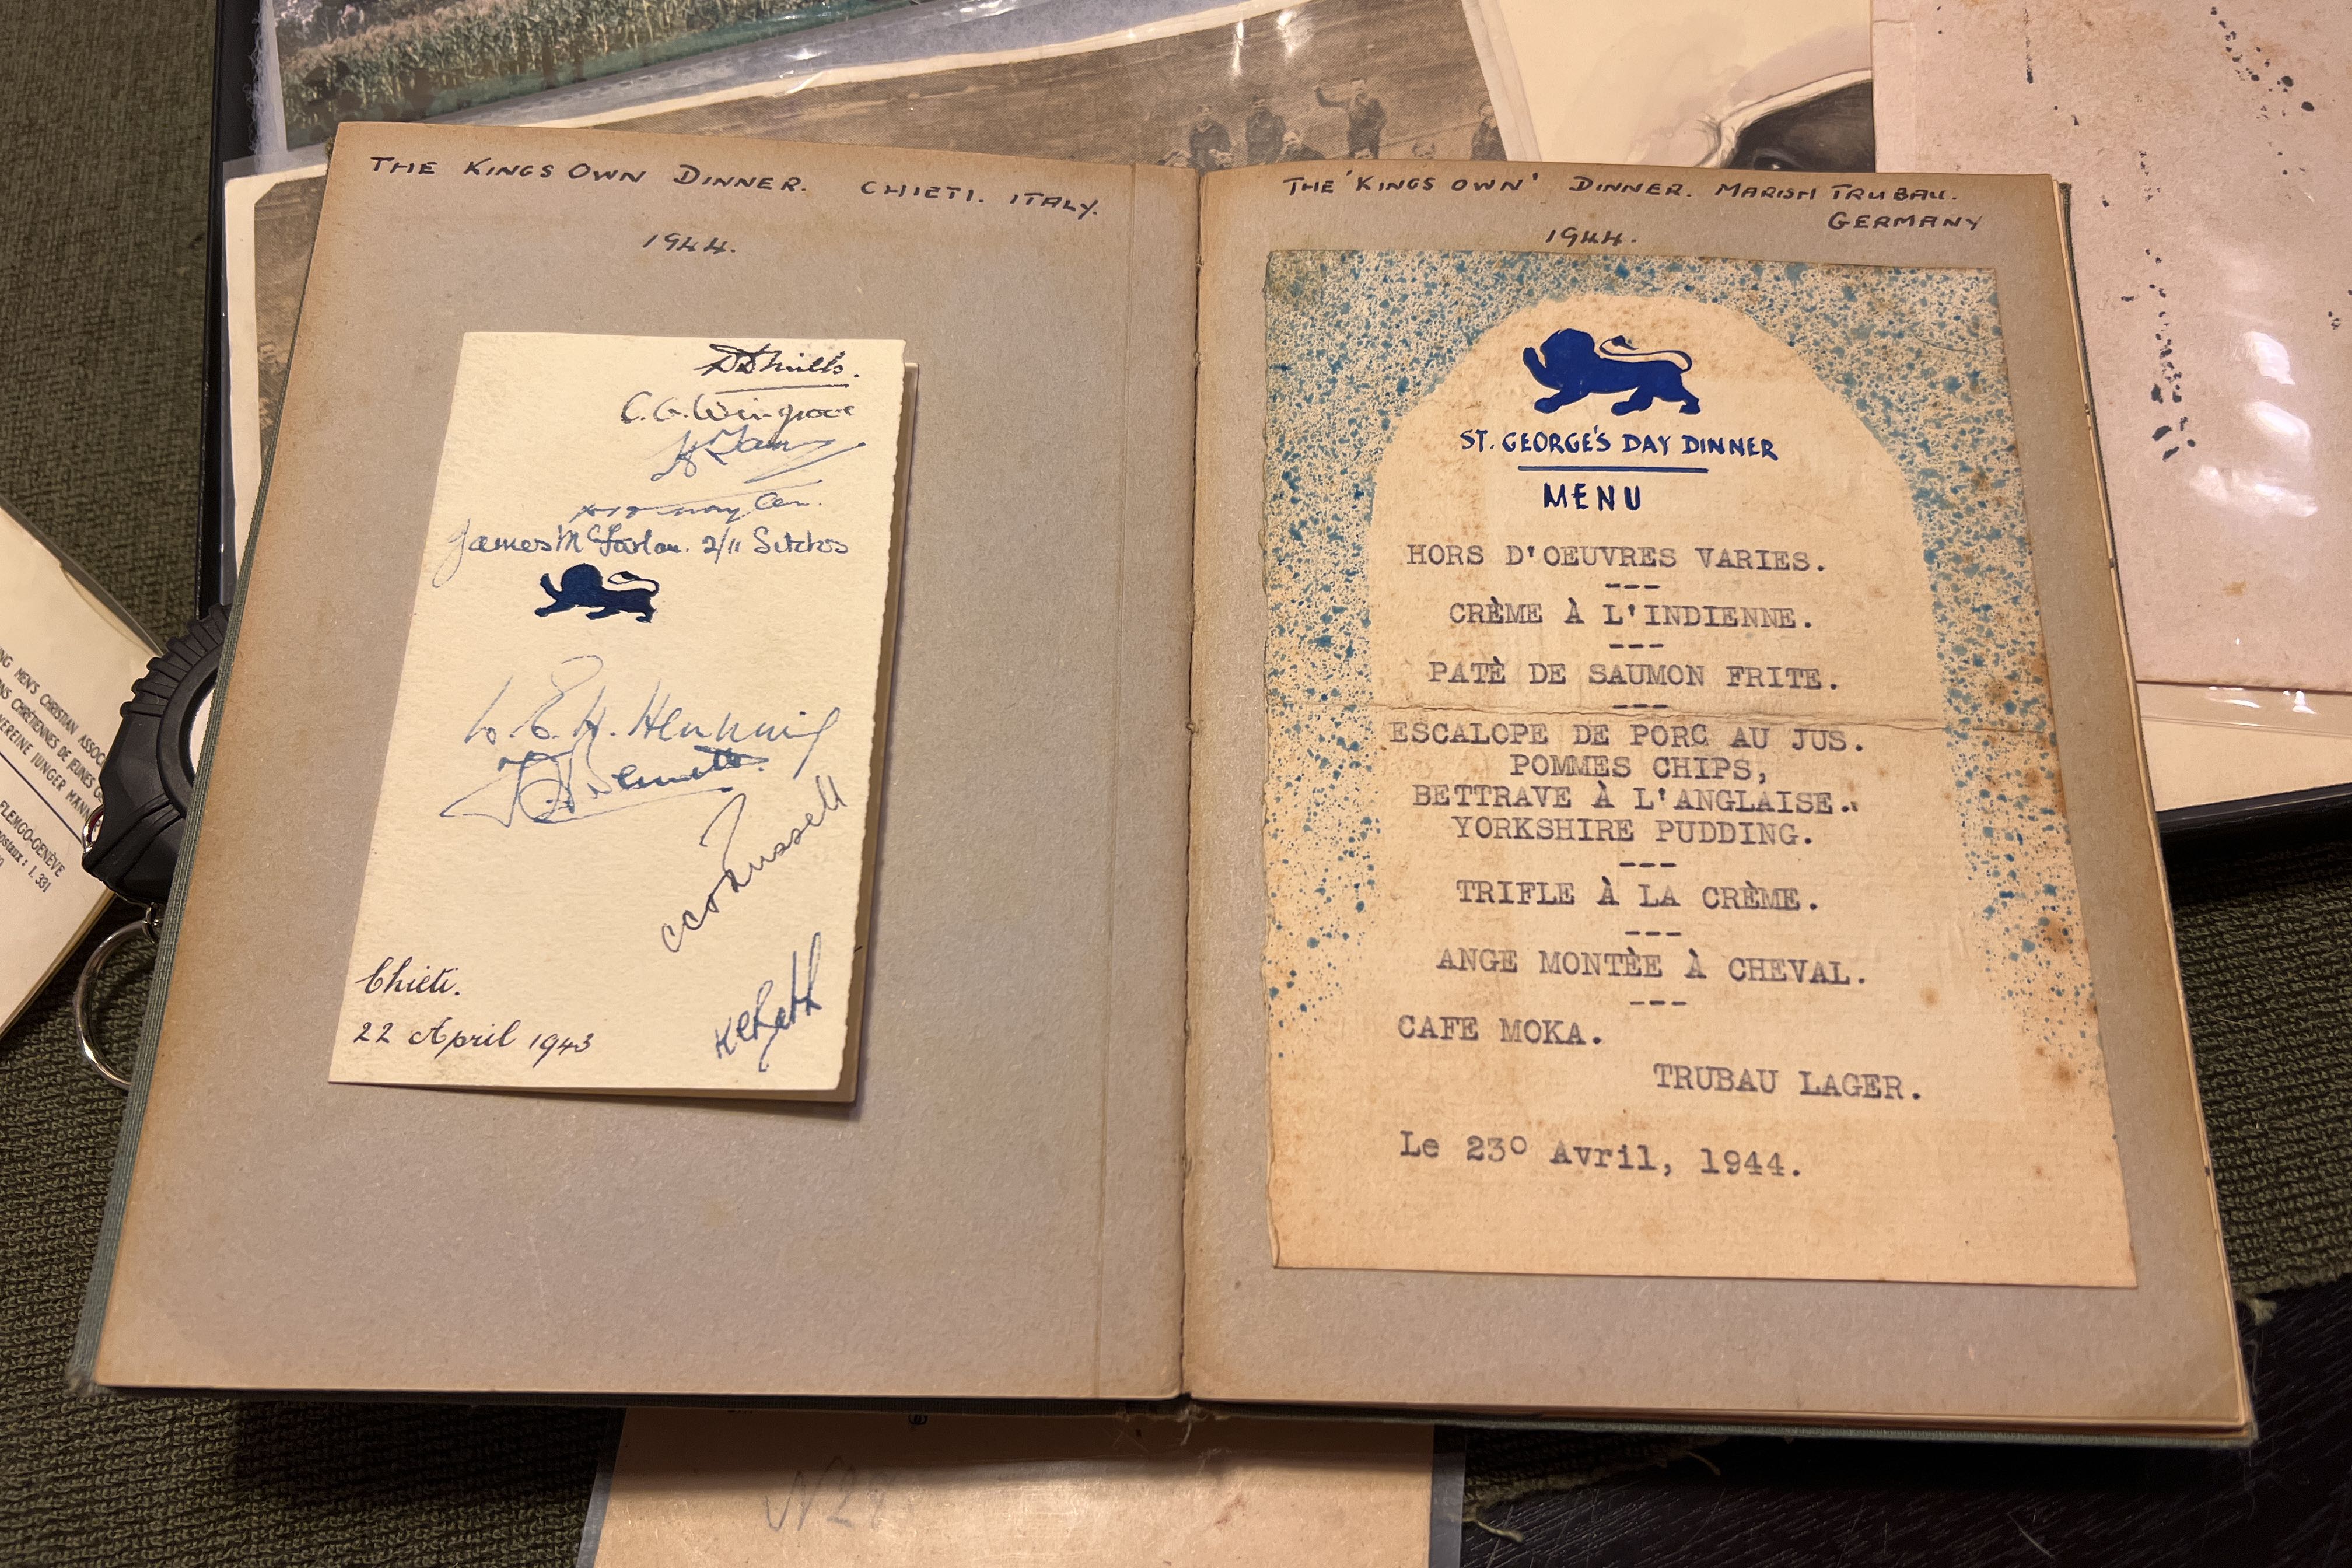 THE KINGS OWN DINNER. CHIETI. ITALY.
1944.
C. G. Wingrove
James McFarlan. 2/11 Sikhs
W. E. H. Henning
Bennett.
Russell
Chieti.
22 April 1943
THE 'KINGS OWN' DINNER. MARISH TRUBAU.
GERMANY
1944.
ST. GEORGE'S DAY DINNER
MENU
HORS D'OEUVRES VARIES.
---
CRÈME À L'INDIENNE.
---
PATÈ DE SAUMON FRITE.
---
ESCALOPE DE PORC AU JUS.
POMMES CHIPS,
BETTRAVE À L'ANGLAISE..
YORKSHIRE PUDDING.
---
TRIFLE À LA CRÈME.
---
ANGE MONTÈE À CHEVAL.
---
CAFE MOKA.
TRUBAU LAGER.
Le 23º Avril, 1944.
MEN'S CHRISTIAN
CHRÉTIENNES DE JEUNES
VEREINE JUNGER
FLEMGO-GENÈVE
: I. 331